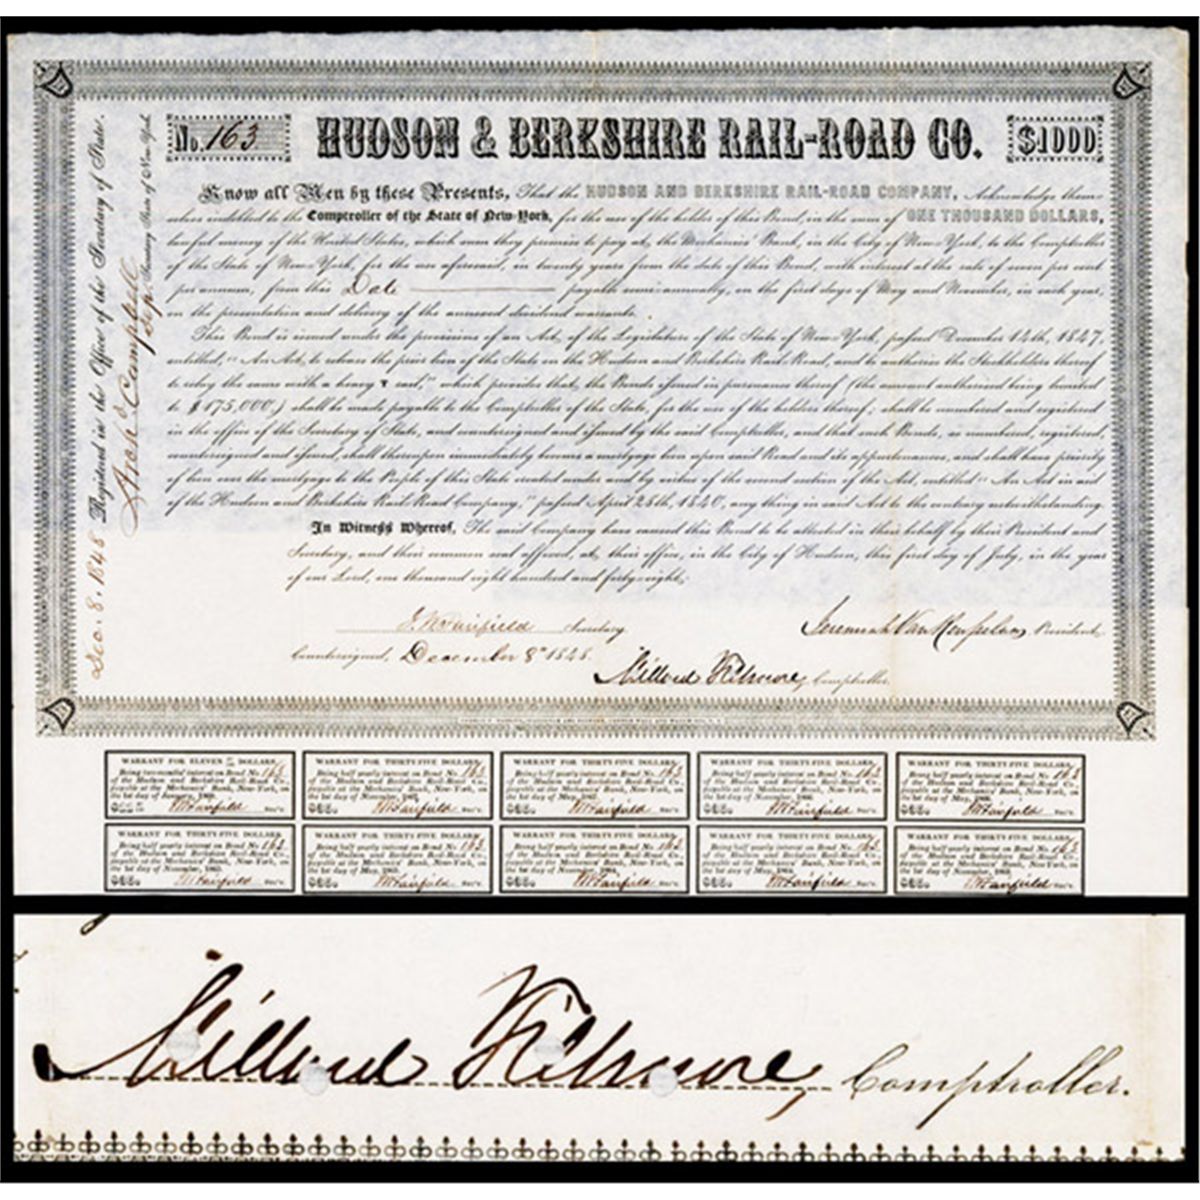 No. 163 HUDSON & BERKSHIRE RAIL-ROAD CO. $1000
Know all Men by these Presents, That the HUDSON AND BERKSHIRE RAIL-ROAD COMPANY, Acknowledge them-
selves indebted to the Comptroller of the State of New-York, for the use of the holder of this Bond, in the sum of ONE THOUSAND DOLLARS,
lawful money of the United States, which sum they promise to pay at the Mechanics' Bank, in the City of New-York, to the Comptroller
of the State of New-York, for the use aforesaid, in twenty years from the date of this Bond, with interest at the rate of seven per cent
per annum, from this Date payable semi-annually, on the first days of May and November, in each year,
on the presentation and delivery of the annexed dividend warrants.
This Bond is issued under the provisions of an Act, of the Legislature of the State of New-York, passed December 14th, 1847,
entitled, "An Act, to release the prior lien of the State in the Hudson and Berkshire Rail-Road, and to authorize the Stockholders thereof
to relay the same with a heavy T rail," which provides that, the Bonds issued in pursuance thereof (the amount authorized being limited
to $175,000,) shall be made payable to the Comptroller of the State, for the use of the holders thereof; shall be numbered and registered
in the office of the Secretary of State, and countersigned and issued by the said Comptroller, and that such Bonds, so numbered, registered,
countersigned and issued, shall thereupon immediately become a mortgage lien upon said Road and its appurtenances, and shall have priority
of lien over the mortgage to the People of this State created under and by virtue of the second section of the Act, entitled "An Act in aid
of the Hudson and Berkshire Rail-Road Company," passed April 28th, 1840, any thing in said Act to the contrary notwithstanding.
In Witness Whereof, The said Company have caused this Bond to be attested in their behalf by their President and
Secretary, and their common seal affixed, at their office, in the City of Hudson, this first day of July, in the year
of our Lord, one thousand eight hundred and forty-eight.
Fairfield Secretary. Jeremiah Van Rensselaer President.
Countersigned, December 8th 1848. Millard Fillmore, Comptroller.
Dec. 8. 1848 Registered in the Office of the Secretary of State.
Archd Campbell
Dep. Secretary State of New-York.
WARRANT FOR ELEVEN DOLLARS,
Being interest on Bond No. 163
of the Hudson and Berkshire Rail-Road Co.
payable at the Mechanics' Bank, New-York, on
the 1st day of
Fairfield Sec'y.
WARRANT FOR THIRTY-FIVE DOLLARS,
Being half yearly interest on Bond No. 163
of the Hudson and Berkshire Rail-Road Co.
payable at the Mechanics' Bank, New-York, on
the 1st day of November,
$35. Fairfield Sec'y.
WARRANT FOR THIRTY-FIVE DOLLARS,
Being half yearly interest on Bond No. 163
of the Hudson and Berkshire Rail-Road Co.
payable at the Mechanics' Bank, New-York, on
the 1st day of May,
$35. Fairfield Sec'y.
WARRANT FOR THIRTY-FIVE DOLLARS,
Being half yearly interest on Bond No. 163
of the Hudson and Berkshire Rail-Road Co.
payable at the Mechanics' Bank, New-York, on
the 1st day of November,
$35. Fairfield Sec'y.
WARRANT FOR THIRTY-FIVE DOLLARS,
Being half yearly interest on Bond No. 163
of the Hudson and Berkshire Rail-Road Co.
payable at the Mechanics' Bank, New-York, on
the 1st day of May,
$35. Fairfield Sec'y.
WARRANT FOR THIRTY-FIVE DOLLARS,
Being half yearly interest on Bond No. 163
of the Hudson and Berkshire Rail-Road Co.
payable at the Mechanics' Bank, New-York, on
the 1st day of November,
$35. Fairfield Sec'y.
WARRANT FOR THIRTY-FIVE DOLLARS,
Being half yearly interest on Bond No. 163
of the Hudson and Berkshire Rail-Road Co.
payable at the Mechanics' Bank, New-York, on
the 1st day of May,
$35. Fairfield Sec'y.
WARRANT FOR THIRTY-FIVE DOLLARS,
Being half yearly interest on Bond No. 163
of the Hudson and Berkshire Rail-Road Co.
payable at the Mechanics' Bank, New-York, on
the 1st day of November,
$35. Fairfield Sec'y.
WARRANT FOR THIRTY-FIVE DOLLARS,
Being half yearly interest on Bond No. 163
of the Hudson and Berkshire Rail-Road Co.
payable at the Mechanics' Bank, New-York, on
the 1st day of May,
$35. Fairfield Sec'y.
WARRANT FOR THIRTY-FIVE DOLLARS,
Being half yearly interest on Bond No. 163
of the Hudson and Berkshire Rail-Road Co.
payable at the Mechanics' Bank, New-York, on
the 1st day of November,
$35. Fairfield Sec'y.
Millard Fillmore, Comptroller.